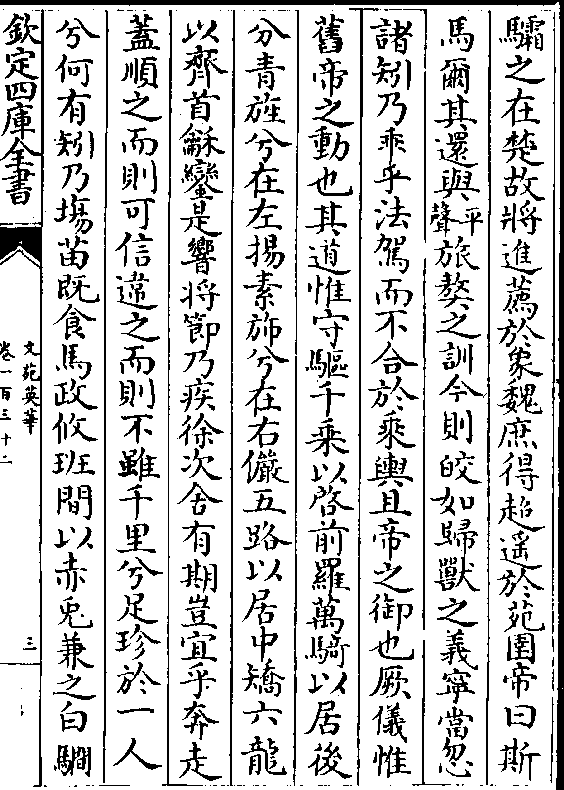 驦之在楚故將進薦於象魏庶得超遥於苑囿帝曰斯
馬爾其還與平聲旅獒之訓今則皎如歸獸之義寧當忽
諸矧乃乖乎法駕而不合於乘輿且帝之御也厥儀惟
舊帝之動也其道惟守驅千乘以啓前羅萬騎以居後
分青旌兮在左揚素斾兮在右儼五路以居中矯六龍
以齊首龢鑾是響將節乃疾徐次舍有期豈宜乎奔走
蓋順之而則可信違之而則不雖千里兮足珍於一人
兮何有矧乃塲苗既食馬政攸班間以赤兎兼之白驧
欽定四庫全書
文苑英華
卷一百三十二
三